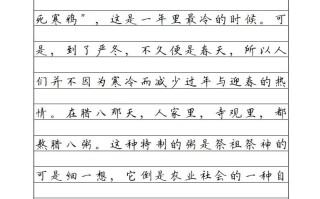 死寒鸦”，这是一年里最冷的时候。可
是，到了严冬，不久便是春天，所以人
们并不因为寒冷而减少过年与迎春的热
情。在腊八那天，人家里，寺观里，都
熬腊八粥。这种特制的粥是祭祖祭神的
可是细一想，它倒是农业社会的一种自